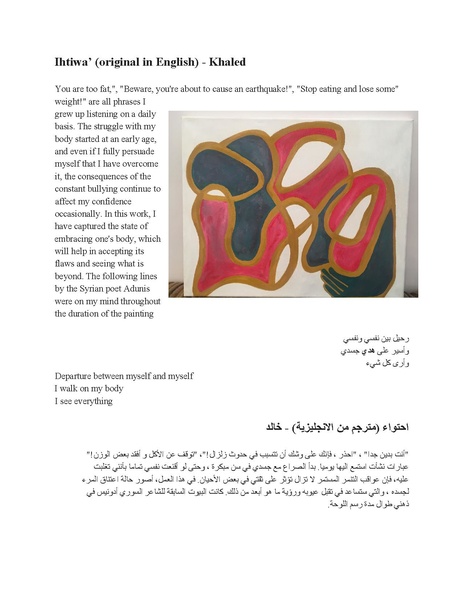 Ihtiwa’ (original in English) - Khaled
You are too fat,", "Beware, you're about to cause an earthquake!", "Stop eating and lose some"
weight!" are all phrases I
grew up listening on a daily
basis. The struggle with my
body started at an early age,
and even if I fully persuade
myself that I have overcome
it, the consequences of the
constant bullying continue to
affect my confidence
occasionally. In this work, I
have captured the state of
embracing one's body, which
will help in accepting its
flaws and seeing what is
beyond. The following lines
by the Syrian poet Adunis
were on my mind throughout
the duration of the painting
رحيل بين نفسي ونفسي
وأسير على هدي جسدي
وأرى كل شيء
Departure between myself and myself
I walk on my body
I see everything
احتواء (مترجم من الانجليزية) - خالد
"أنت بدين جدا" ، "احذر ، فإنك على وشك أن تتسبب في حدوث زلزال !"، "توقف عن الأكل و أفقد بعض الوزن!"
عبارات نشأت استمع اليها يوميا. بدأ الصراع مع جسدي في سن مبكرة ، وحتى لو أقنعت نفسي تماما بأنني تغلبت
عليه، فإن عواقب التنمر المستمر لا تزال تؤثر على ثقتي في بعض الأحيان. في هذا العمل، أصور حالة اعتناق المرء
لجسده ، والتي ستساعد في تقبل عيوبه ورؤية ما هو أبعد من ذلك. كانت البيوت السابقة للشاعر السوري أدونيس في
ذهني طوال مدة رسم اللوحة.